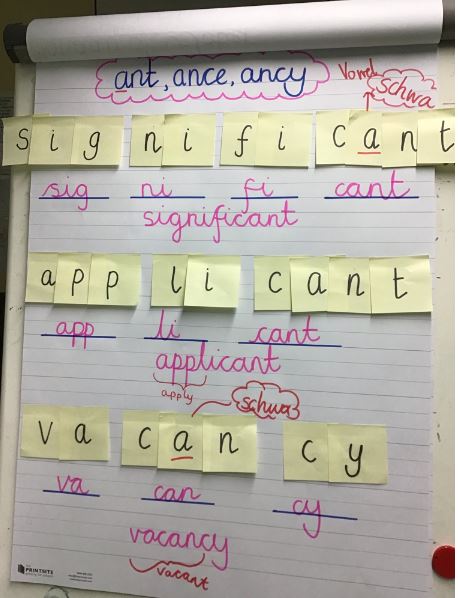 ant, ance, ancy
Vowel
schwa
sig ni fi cant
sig ni fi cant
significant
app li cant
app li cant
applicant
apply
schwa
va can cy
va can cy
vacancy
vacant
PRINTSITE